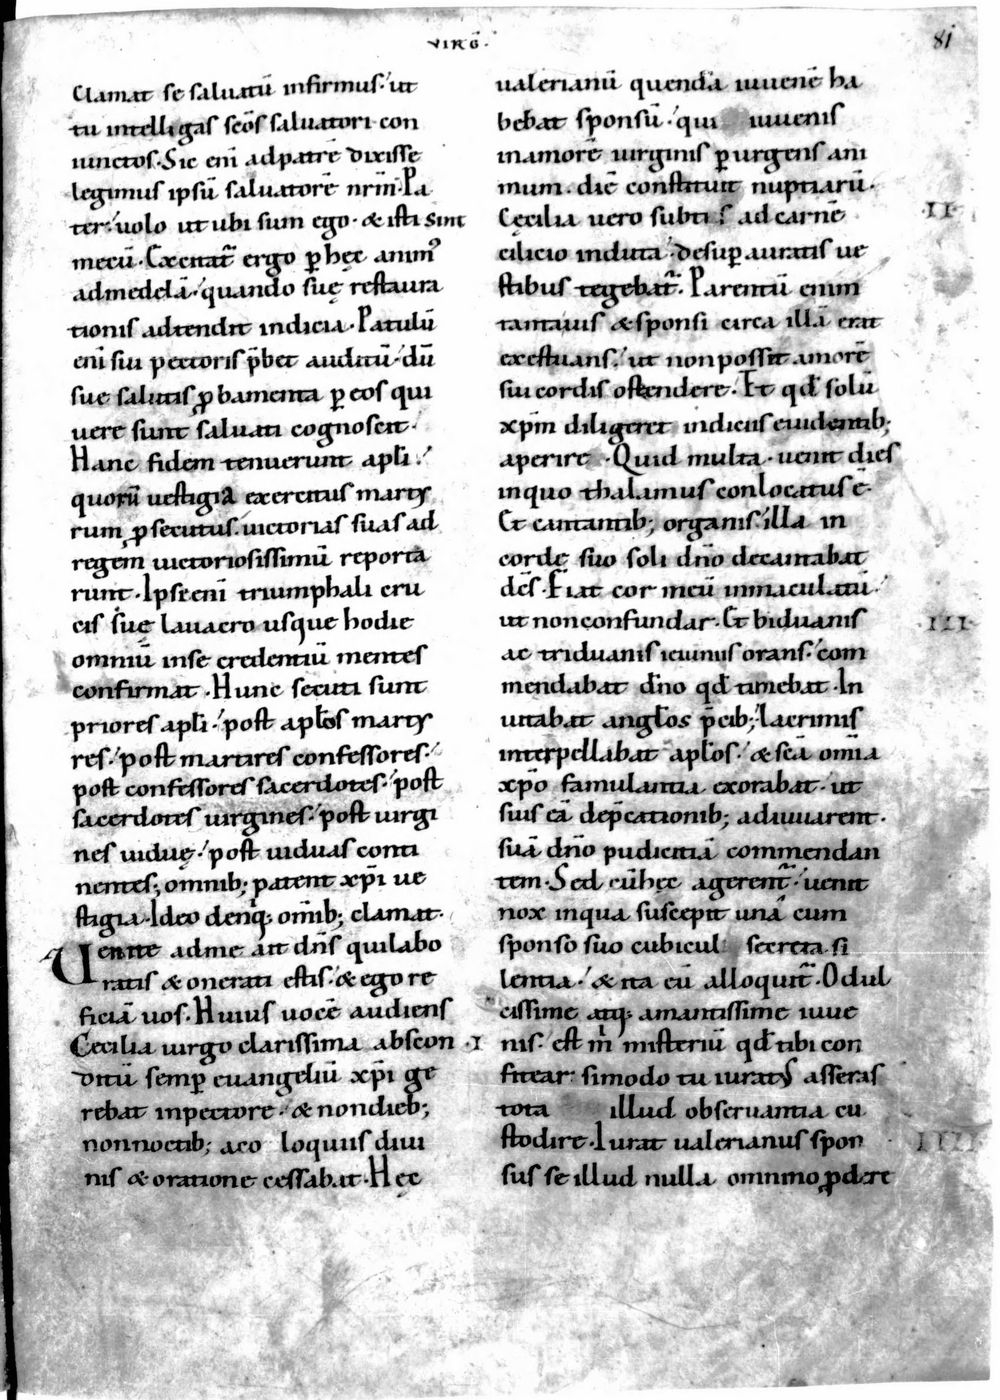 VIRḠ·
81
Clamat se saluatū infirmus·ut
tu intelligas sc̄os saluatori con
iunctos·Sic eni̅ adpatrē dixisse
legimus ipsū saluatorē nr̄m·Pa
ter·uolo ut ubi sum ego·& isti sint
mecū·Excitat̄ ergo p̱ hęc anim᾽
admedelā·quando suę restaura
tionis adtendit indicia·Patulū
eni̅ sui pectoris p̄bet auditū·dū
sue salutis ꝓbamenta p̱ eos qui
uere sunt saluati cognoscit·
Hanc fidem tenuerunt apl̄i·
quorū uestigia exercitus marty
rum ꝓsecutus·uictorias suas ad
regem uictoriosissimū reporta
runt·Ipse eni̅ triumphali cru
cis suę lauacro usque hodie
omniū inse credentiū mentes
confirmat·Hunc secuti sunt
priores apl̄i·post apl̄os marty
res·post martires confessores·
post confessores sacerdotes·post
sacerdotes uirgines·post uirgi
nes uiduę·post uiduas conti
nentes; omnib; patent xp̄i ue
stigia·Ideo denq; om̄ib; clamat·
Uenite adme ait dn̄s quilabo
ratis & onerati estis·& ego re
ficiā uos·Huius uocē audiens
Cecilia uirgo clarissima abscon ·I
ditū semp̱ euangeliū xp̄i ge
rebat inpectore·& nondieb;
nonnoctib; aco loquiis diui
nis & oratione cessabat·Hęc
ualerianū quendā iuuenē ha
bebat sponsū·qui iuuenis
inamorē uirginis p̱urgens ani
mum·diē constituit nuptiarū·
Cęcilia uero subti s ad carnē ·II·
cilicio induta·desup̱ auratis ue
stibus tegebat̄·Parentū enim
tantauis & sponsi circa illā erat
exestuans·ut non possit amorē
sui cordis ostendere·Et qd̄ solū
xp̄m diligeret indiciis euidentib;
aperire·Quid multa·uenit dies
inquo thalamus conlocatus ē·
Et cantantib; organis·illa in
corde suo soli dn̄o decantabat
dc̄s·Fiat cor meū inmaculatū·
ut nonconfundar·Et biduanis ·III·
ac triduanis ieiuniis orans·com
mendabat dn̄o qd̄ timebat·In
uitabat angl̄os p̄cib; lacrimis
interpellabat apl̄os·& sc̄a om̄ia
xp̄o famulantia exorabat·ut
suis eā dep̄cationib; adiuuarent·
suā dn̄o pudicitiā commendan
tem·Sed cū hęc agerent̄·uenit
nox inqua suscepit unā cum
sponso suo cubicul secreta si
lentia·& ita eū alloquit̄·O dul
cissime atq; amantissime iuue
nis·est m̄ misteriū qd̄ tibi con
fitear·simodo tu iuratus asseras
tota illud obseruantia cu
stodire·Iurat ualerianus spon ·IIII·
sus se illud nulla omnino ꝓdere